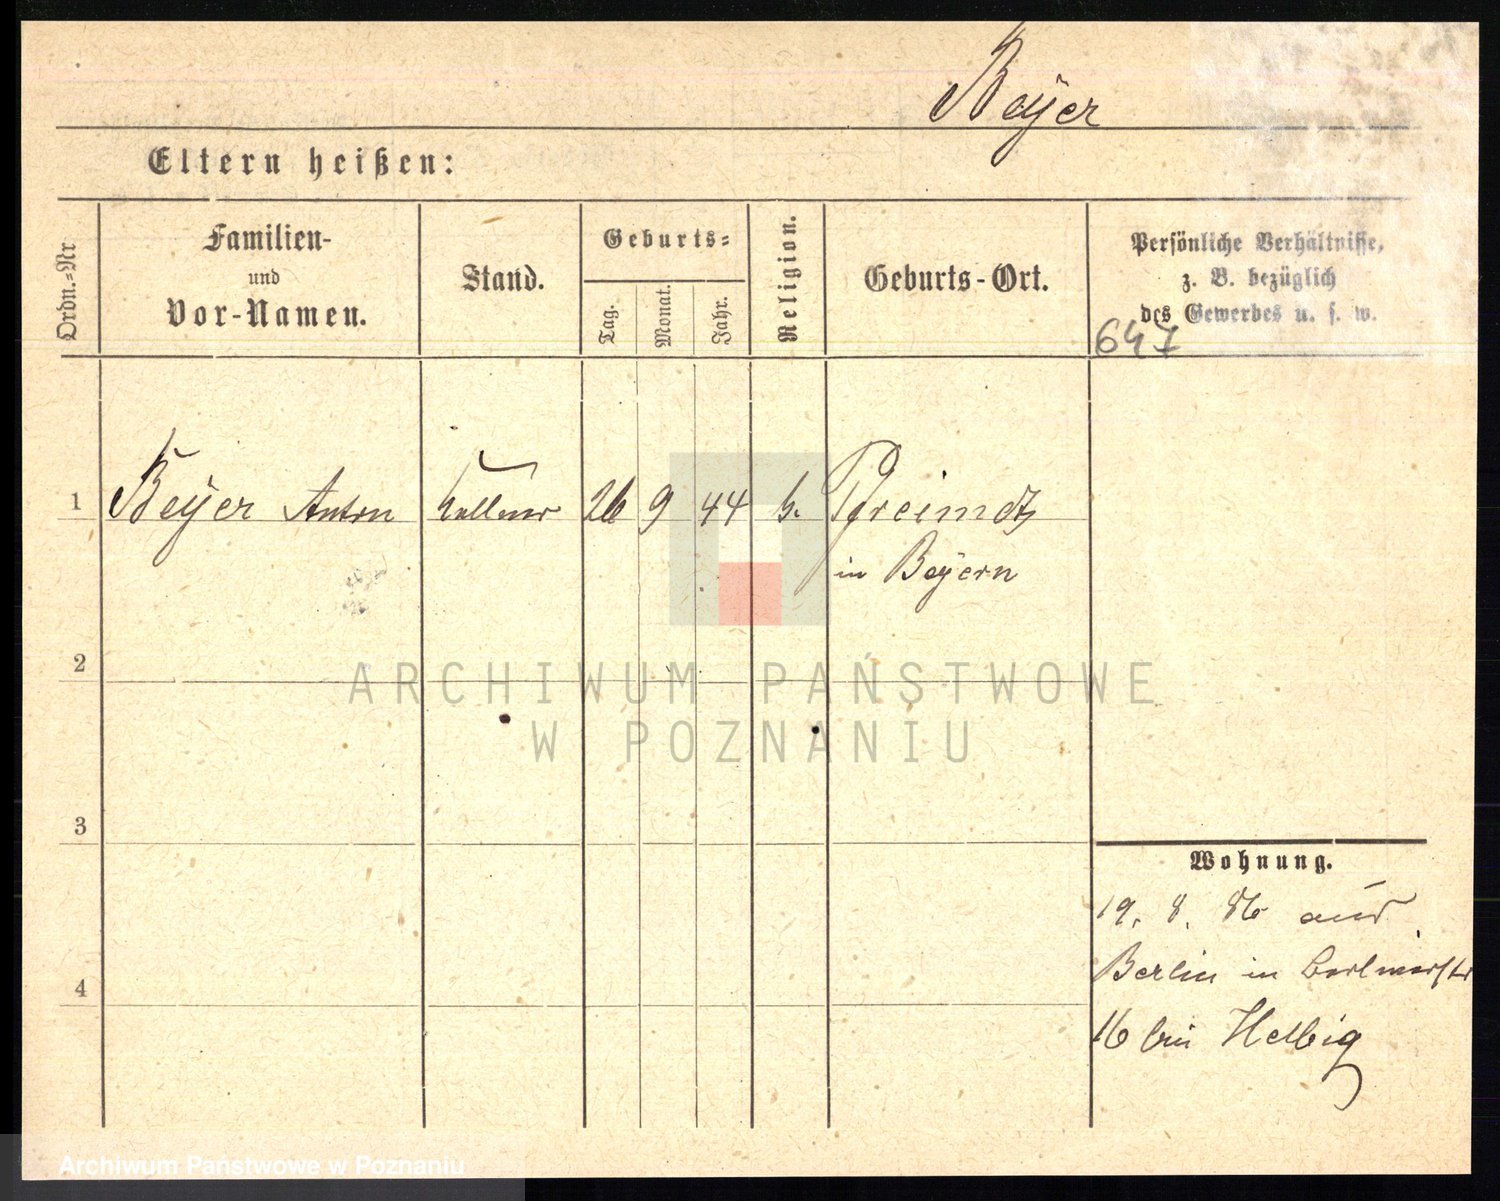 Bayer
Eltern heißen:
Ordn.-Nr
Familien-
und
Vor-Namen.
Stand.
Geburts-
Tag.
Monat.
Jahr.
Religion.
Geburts-Ort.
Persönliche Verhältnisse,
z. B. bezüglich
des Gewerbes u. s. w.
647
1 Beyer Anton Kellner 26 9 44 k. Pfreimdt
in Bayern
2
ARCHIWUM PAŃSTWOWE
W POZNANIU
3
Wohnung.
19. 8. 86 aus
Berlin in
4
16 bei Helbig
Archiwum Państwowe w Poznaniu